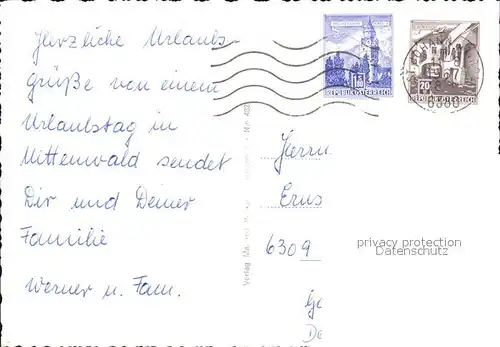 Herzliche Urlaubs-
grüße von einem
Urlaubstag in
Mittenwald sendet
Dir und Deiner
Familie
Werner u. Fam.
REPUBLIK ÖSTERREICH
20
REPUBLIK ÖSTERREICH
Verlag
Herrn
Erns
6309
privacy protection
Datenschutz
De